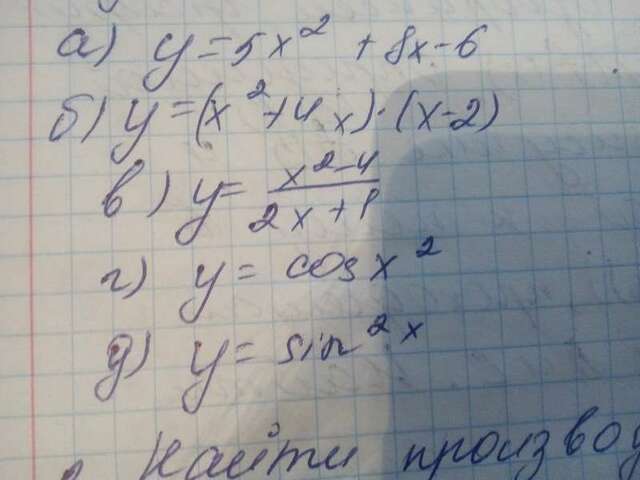 а) y=5x²+8x-6
б) y=(x²+4x)·(x-2)
в) y=\frac{x²-4}{2x+1}
г) y=cosx²
д) y=sin²x
Найти произво